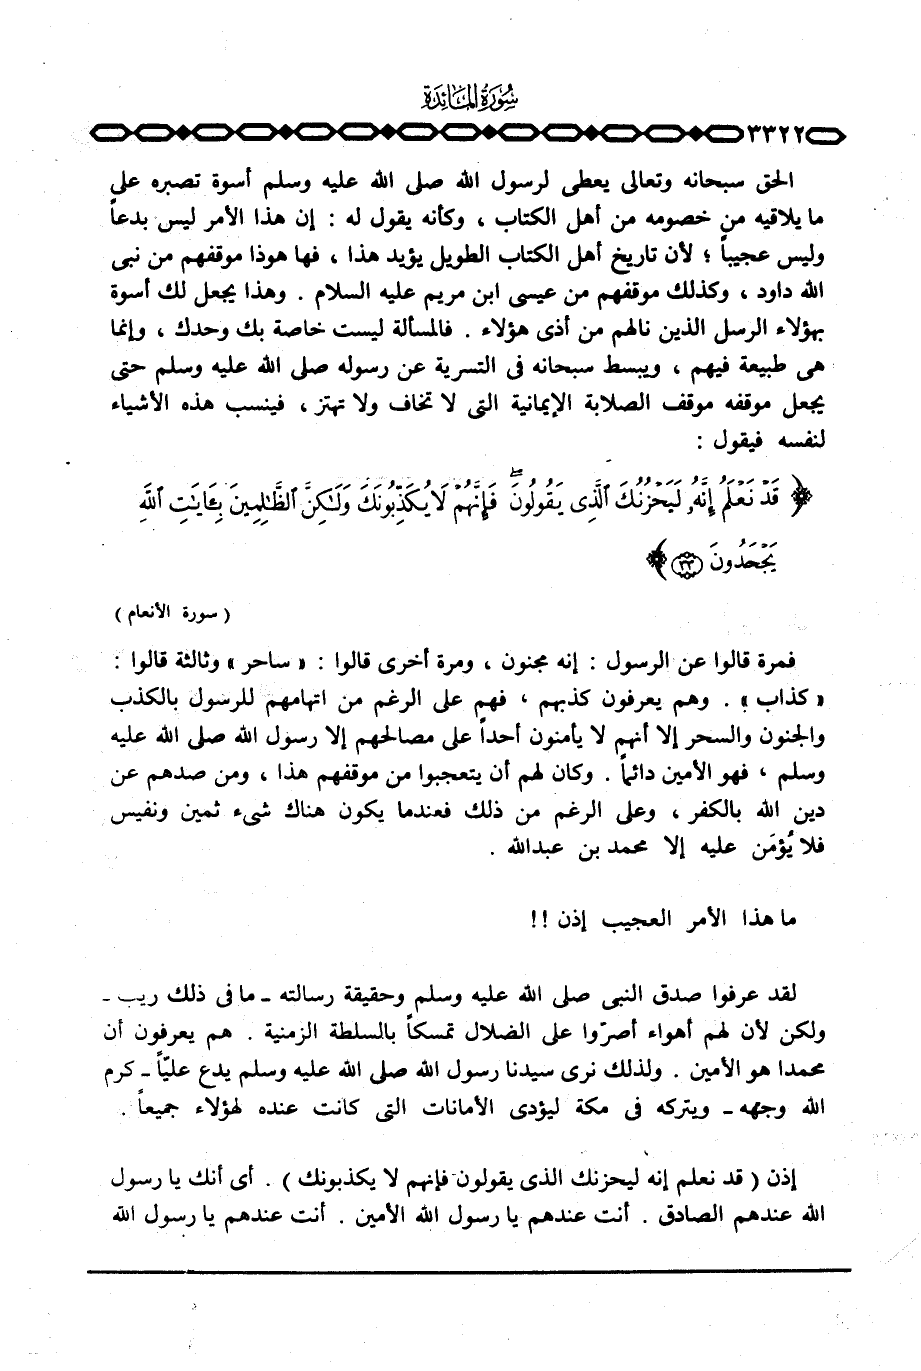 سُورَةُ المَائِدَة
٣٣٢٢
الحق سبحانه وتعالى يعطى لرسول الله صلى الله عليه وسلم أسوة تصبره على
ما يلاقيه من خصومه من أهل الكتاب ، وكأنه يقول له : إن هذا الأمر ليس بدعاً
وليس عجيباً ؛ لأن تاريخ أهل الكتاب الطويل يؤيد هذا ، فها هوذا موقفهم من نبى
الله داود ، وكذلك موقفهم من عيسى ابن مريم عليه السلام . وهذا يجعل لك أسوة
بهؤلاء الرسل الذين نالهم من أذى هؤلاء . فالمسألة ليست خاصة بك وحدك ، وإنما
هى طبيعة فيهم ، ويبسط سبحانه فى التسرية عن رسوله صلى الله عليه وسلم حتى
يجعل موقفه موقف الصلابة الإيمانية التى لا تخاف ولا تهتز ، فينسب هذه الأشياء
لنفسه فيقول :
﴿ قَدْ نَعْلَمُ إِنَّهُۥ لَيَحْزُنُكَ ٱلَّذِى يَقُولُونَۖ فَإِنَّهُمْ لَا يُكَذِّبُونَكَ وَلَـٰكِنَّ ٱلظَّـٰلِمِينَ بِـَٔايَـٰتِ ٱللَّهِ
يَجْحَدُونَ ٣٣ ﴾
( سورة الأنعام )
فمرة قالوا عن الرسول : إنه مجنون ، ومرة أخرى قالوا : « ساحر » وثالثة قالوا :
« كذاب » . وهم يعرفون كذبهم ، فهم على الرغم من اتهامهم للرسول بالكذب
والجنون والسحر إلا أنهم لا يأمنون أحداً على مصالحهم إلا رسول الله صلى الله عليه
وسلم ، فهو الأمين دائماً . وكان لهم أن يتعجبوا من موقفهم هذا ، ومن صدهم عن
دين الله بالكفر ، وعلى الرغم من ذلك فعندما يكون هناك شىء ثمين ونفيس
فلا يُؤمَن عليه إلا محمد بن عبدالله .
ما هذا الأمر العجيب إذن !!
لقد عرفوا صدق النبى صلى الله عليه وسلم وحقيقة رسالته ـ ما فى ذلك ريب ـ
ولكن لأن لهم أهواء أصرّوا على الضلال تمسكاً بالسلطة الزمنية . هم يعرفون أن
محمدا هو الأمين . ولذلك نرى سيدنا رسول الله صلى الله عليه وسلم يدع عليّاً ـ كرم
الله وجهه ـ ويتركه فى مكة ليؤدى الأمانات التى كانت عنده لهؤلاء جميعاً .
إذن ( قد نعلم إنه ليحزنك الذى يقولون فإنهم لا يكذبونك ) . أى أنك يا رسول
الله عندهم الصادق . أنت عندهم يا رسول الله الأمين . أنت عندهم يا رسول الله